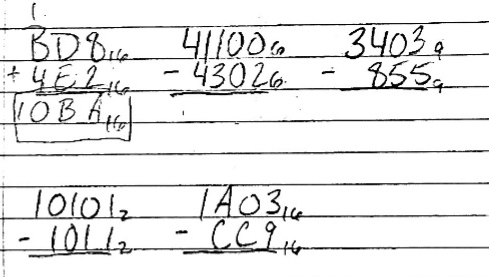 1
BD8₁₆ 41100₆ 3403₉
+ 4E2₁₆ - 4302₆ - 855₉
10BA₁₆
10101₂ 1A03₁₆
- 1011₂ - CC9₁₆